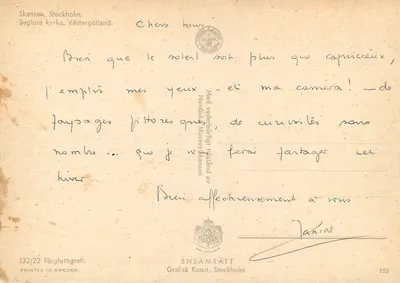 Skansen, Stockholm.
Seglora kyrka, Västergötland.
Chers tous
Bien que le soleil soit plus que capricieux,
j'emplis mes yeux - et ma caméra! - de
paysages pittoresques, de curiosités sans
nombre... que je vous ferai partager cet
hiver
Bien affectueusement à vous
Janine
Med vederbörligt tillstånd av
Nordiska Museet-Skansen
ENSAMRÄTT
Grafisk Konst, Stockholm
132/22 Färgfotografi.
PRINTED IN SWEDEN.
255